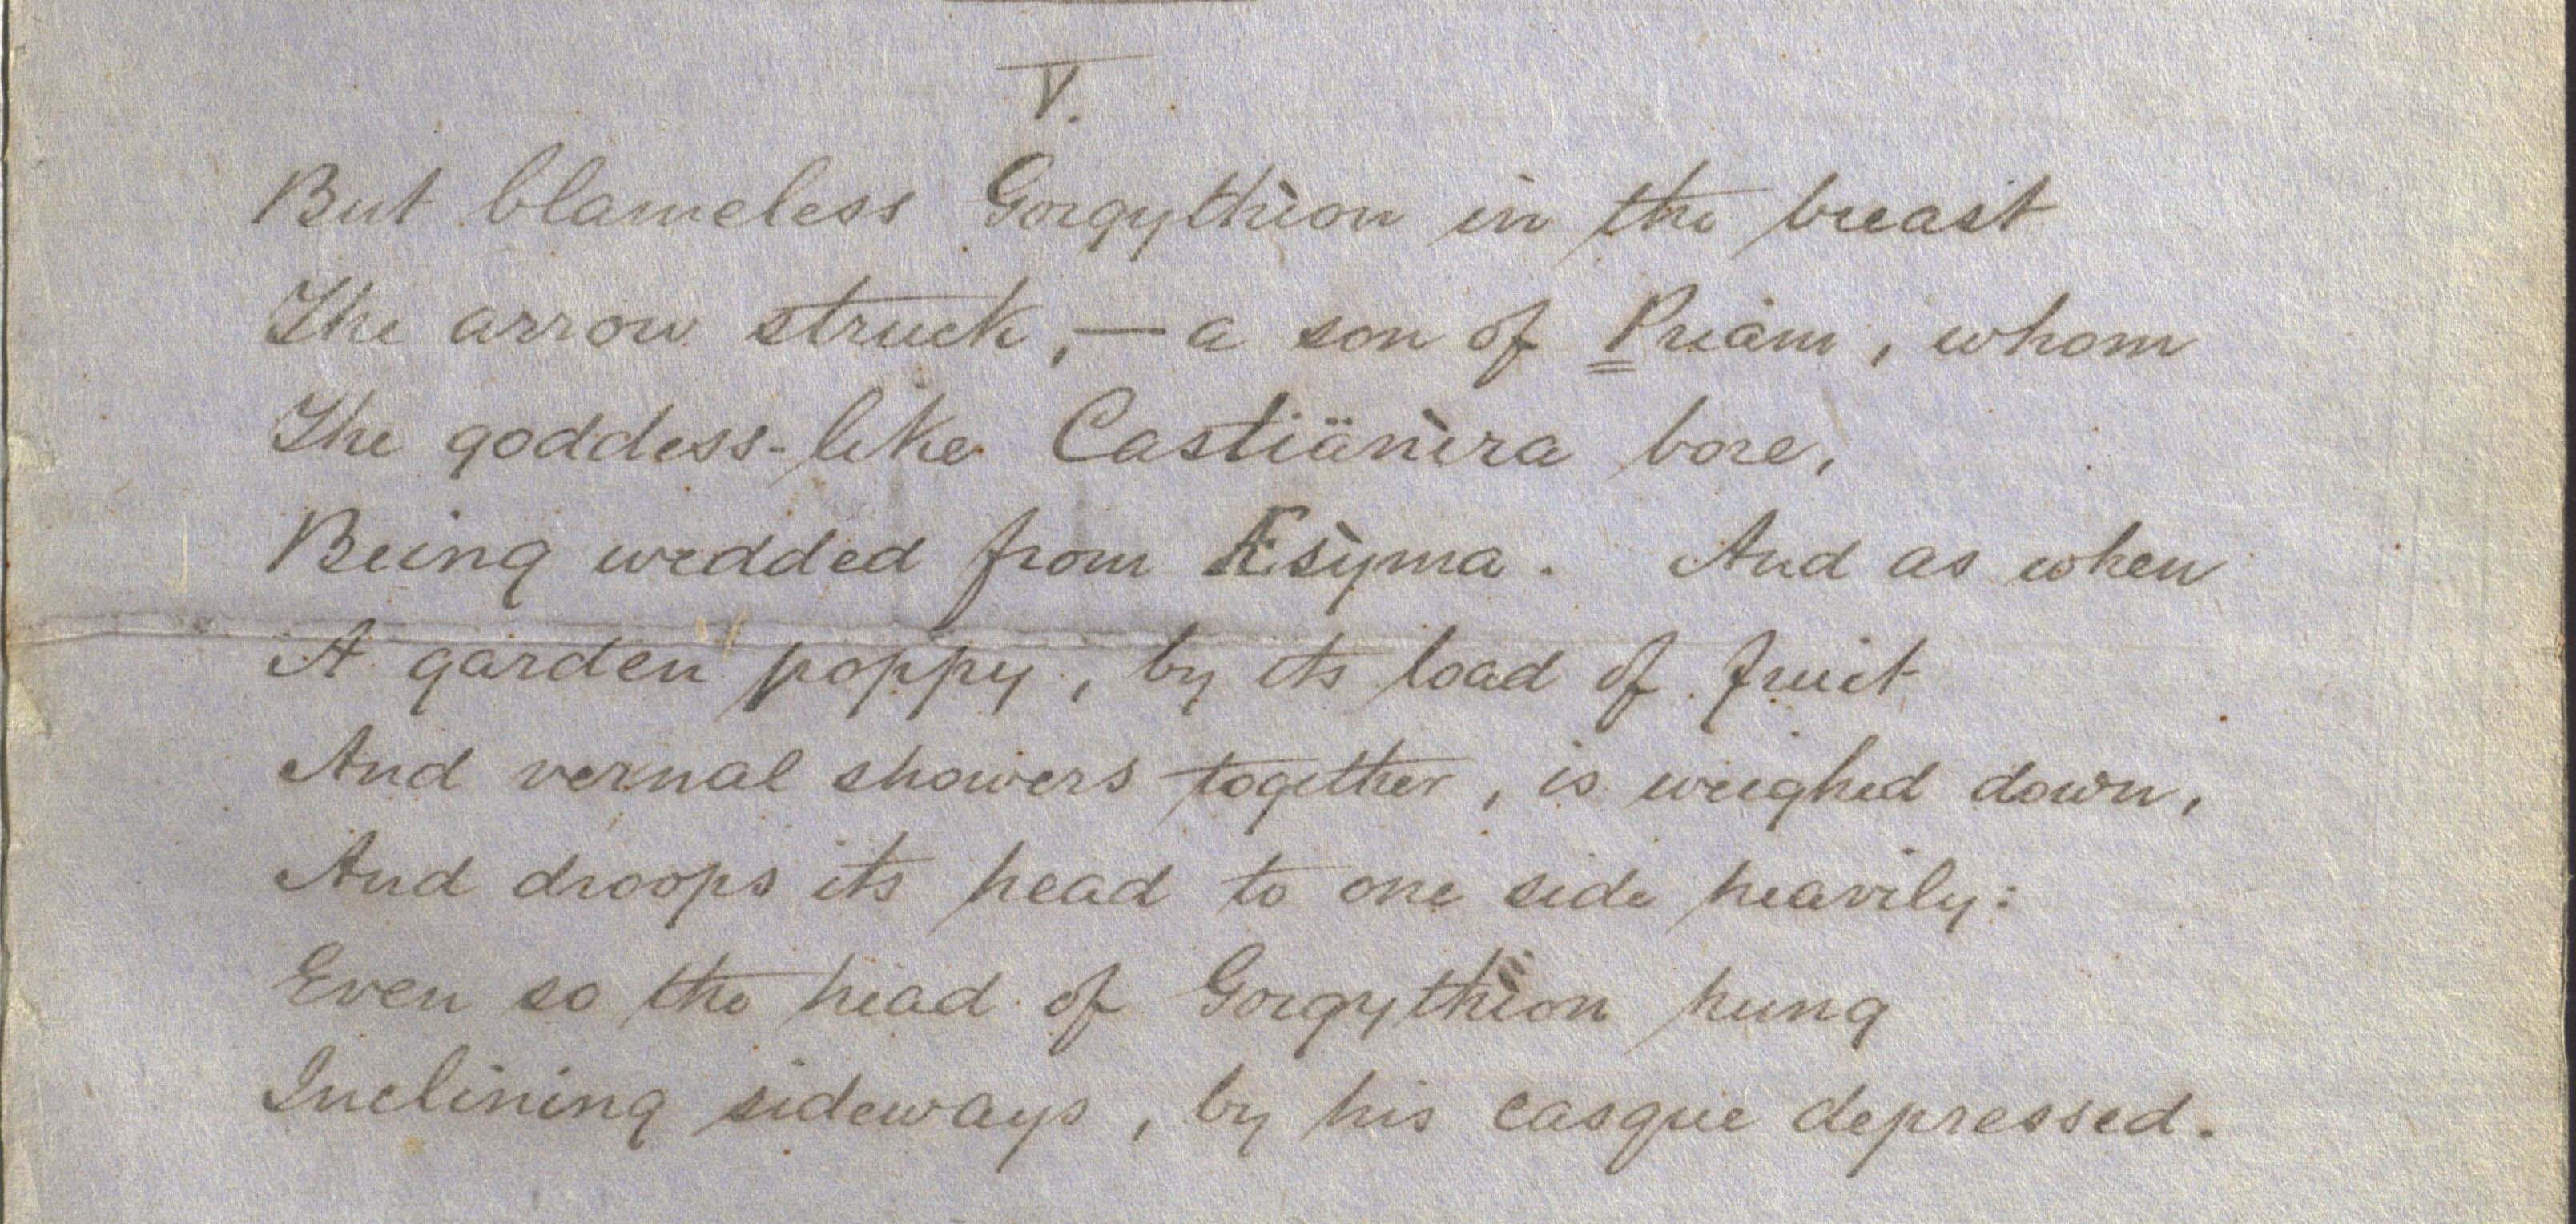 V.
But blameless Gorgythìon in the breast
The arrow struck,—a son of Priam, whom
The goddess-like Castiänìra bore,
Being wedded from Æsỳma. And as when
A garden poppy, by its load of fruit
And vernal showers together, is weighed down,
And droops its head to one side heavily:
Even so the head of Gorgythìon hung
Inclining sideways, by his casque depressed.